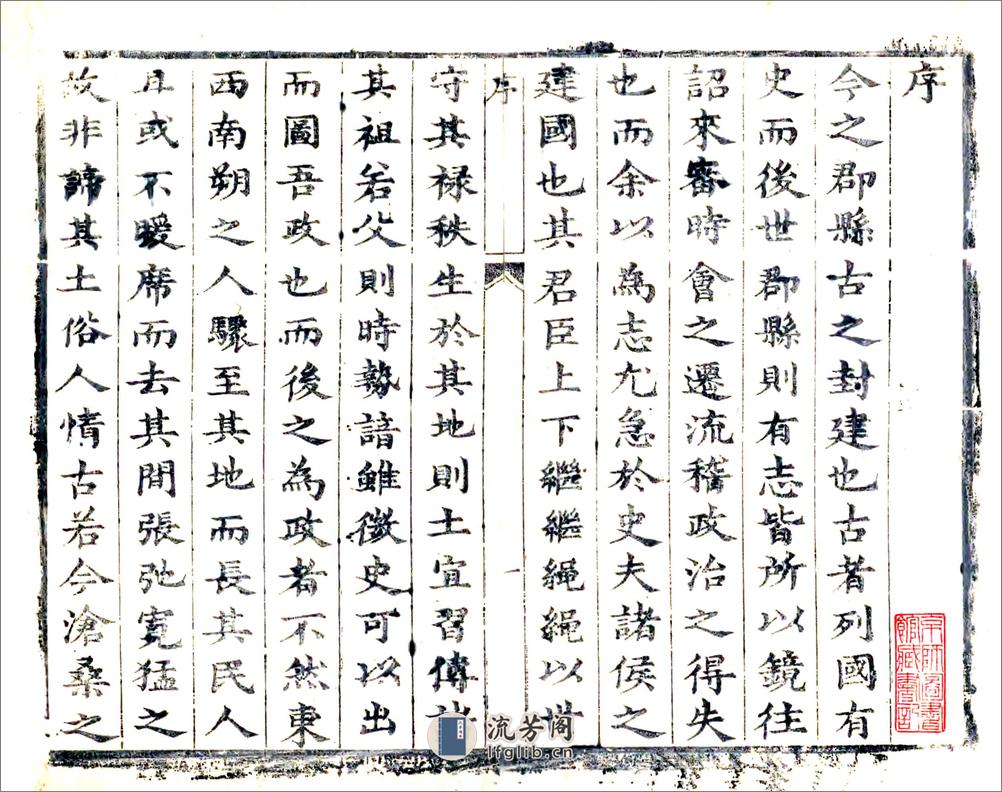 序
今之郡縣古之封建也古者列國有
史而後世郡縣則有志皆所以鏡往
詔來審時會之遷流稽政治之得失
也而余以為志尤急於史夫諸侯之
建國也其君臣上下繼繼繩繩以世
序
一
守其祿秩生於其地則土宜習傳諸
其祖若父則時勢諳雖微史可以出
而圖吾政也而後之為政者不然東
西南朔之人驟至其地而長其民人
且或不暖席而去其間張弛寬猛之
故非諦其土俗人情古若今滄桑之
京師圖書
館藏書記
流芳阁
lfglib.cn